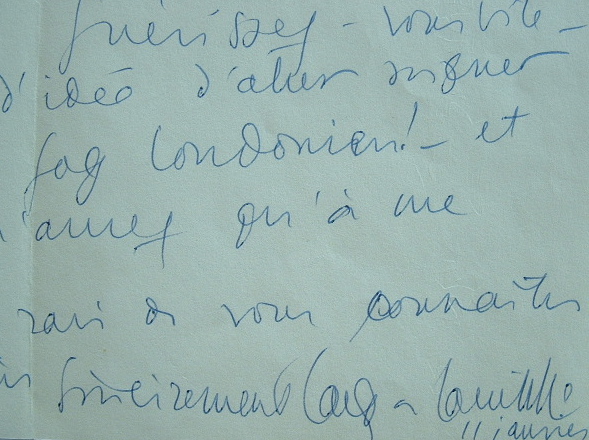 guérissez - vous vite -
d'idée d'aller soigner
fog londonien! - et
n'avez qu'à me
ravi de vous connaître
sincèrement
11 janvier